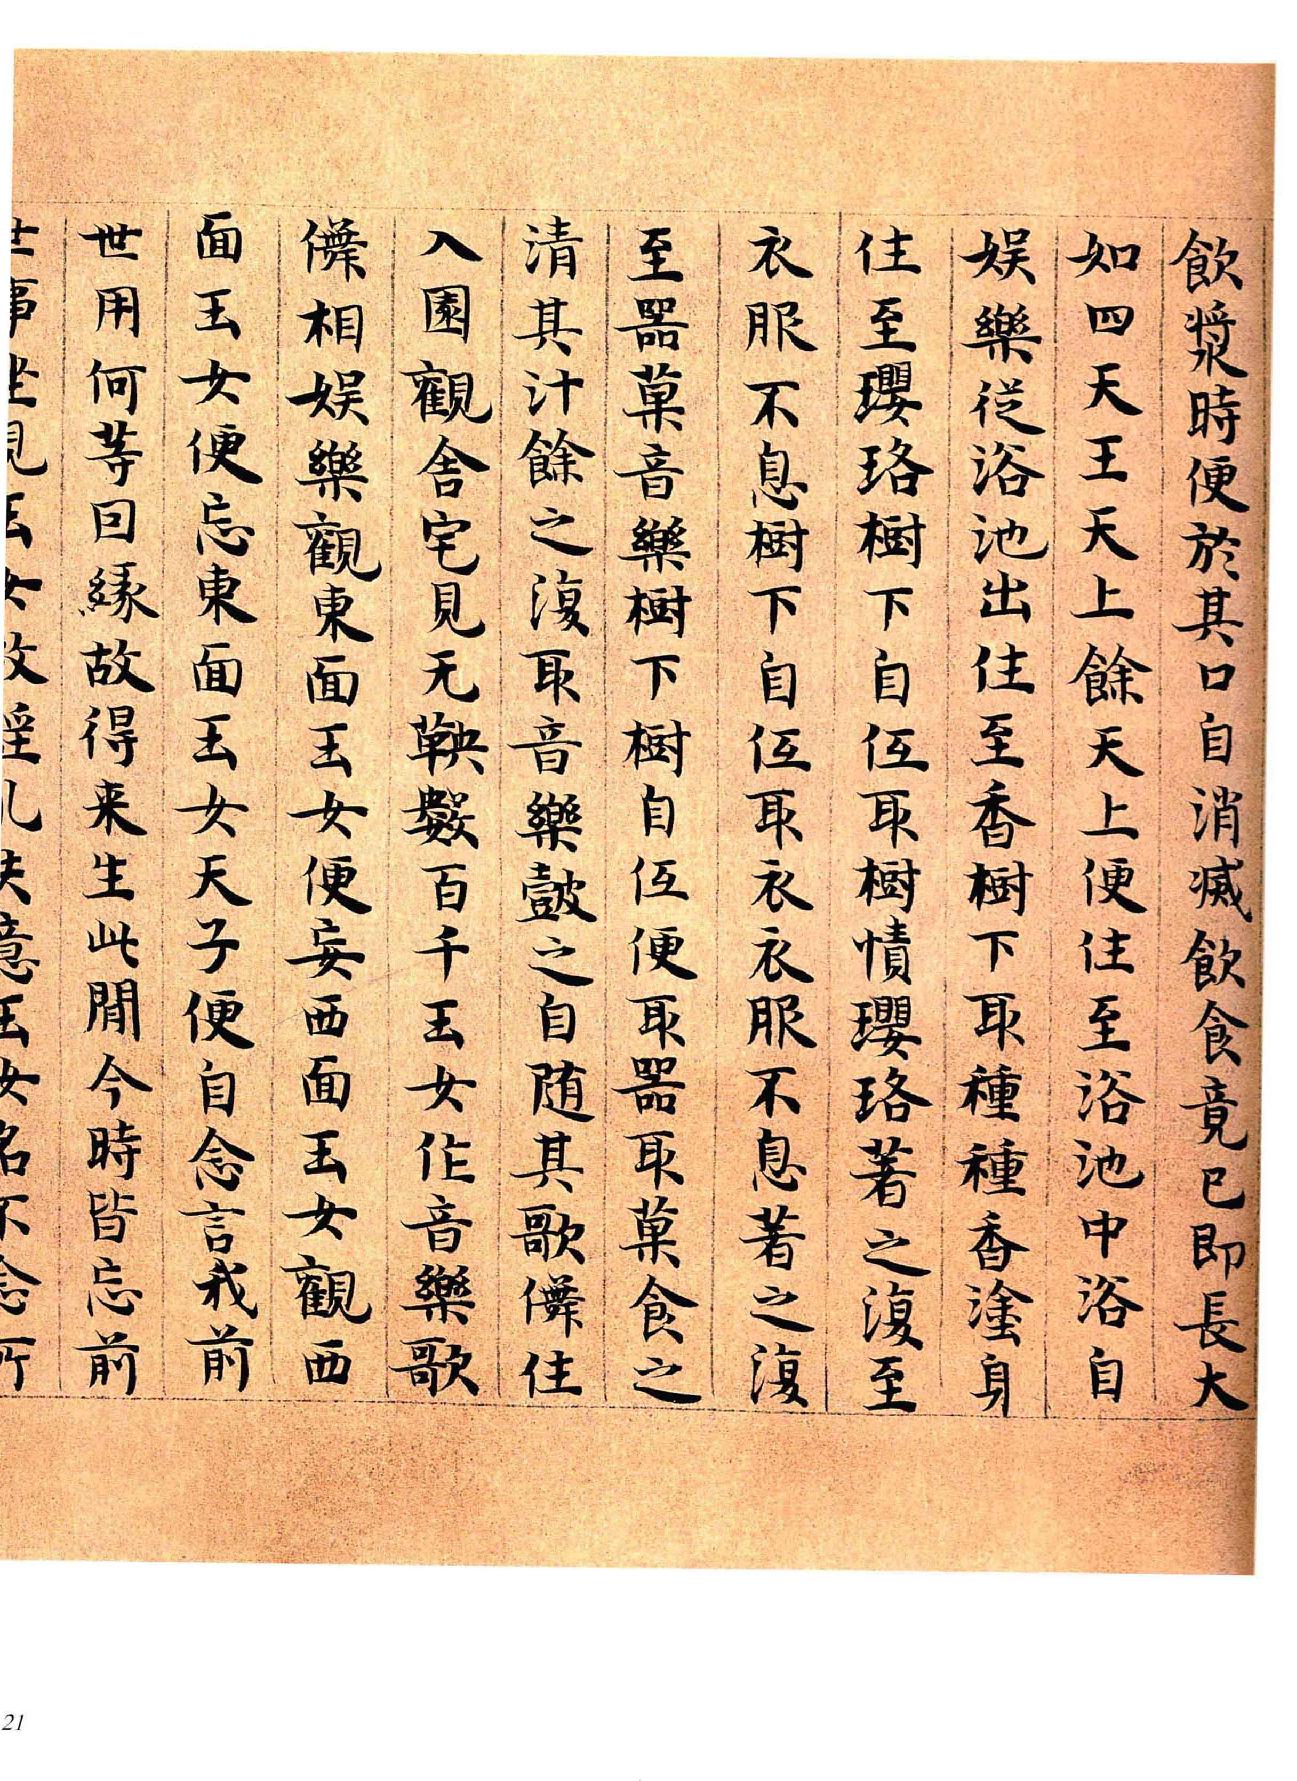 飲漿時便於其口自消滅飲食竟已即長大
如四天王天上餘天上便住至浴池中浴自
娱樂從浴池出住至香樹下取種種香塗身
住至瓔珞樹下自低取樹憒瓔珞著之復至
衣服不息樹下自低取衣衣服不息著之復
至器菓音樂樹下樹自低便取器取菓食之
清其汁餘之復取音樂鼓之自随其歌儛住
入園觀舍宅見无鞅數百千玉女作音樂歌
儛相娱樂觀東面玉女便妄西面玉女觀西
面玉女便忘東面玉女天子便自念言我前
世用何等因緣故得来生此間今時皆忘前
世事坐見玉女故婬乱失意玉女名不念所
21